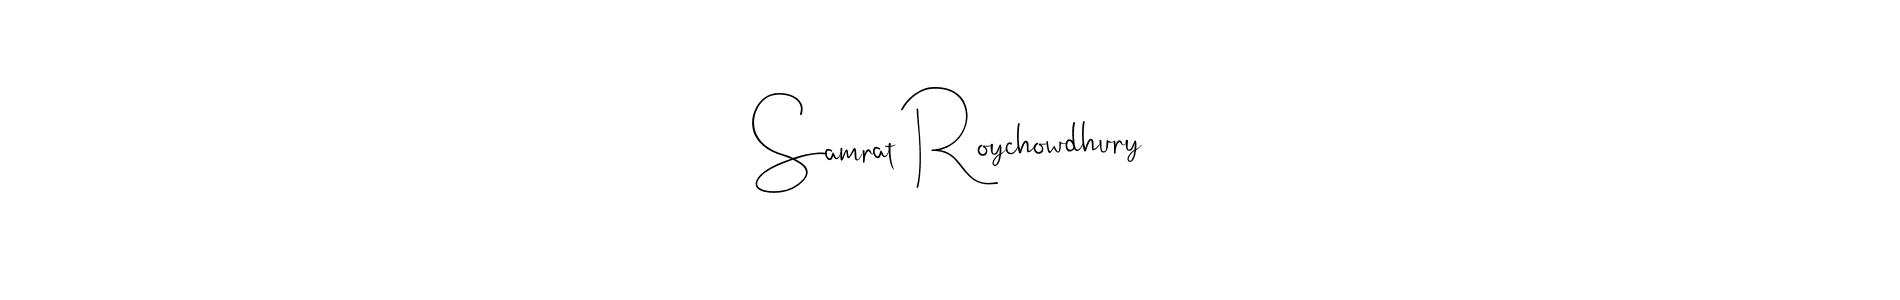 Samrat Roychowdhury